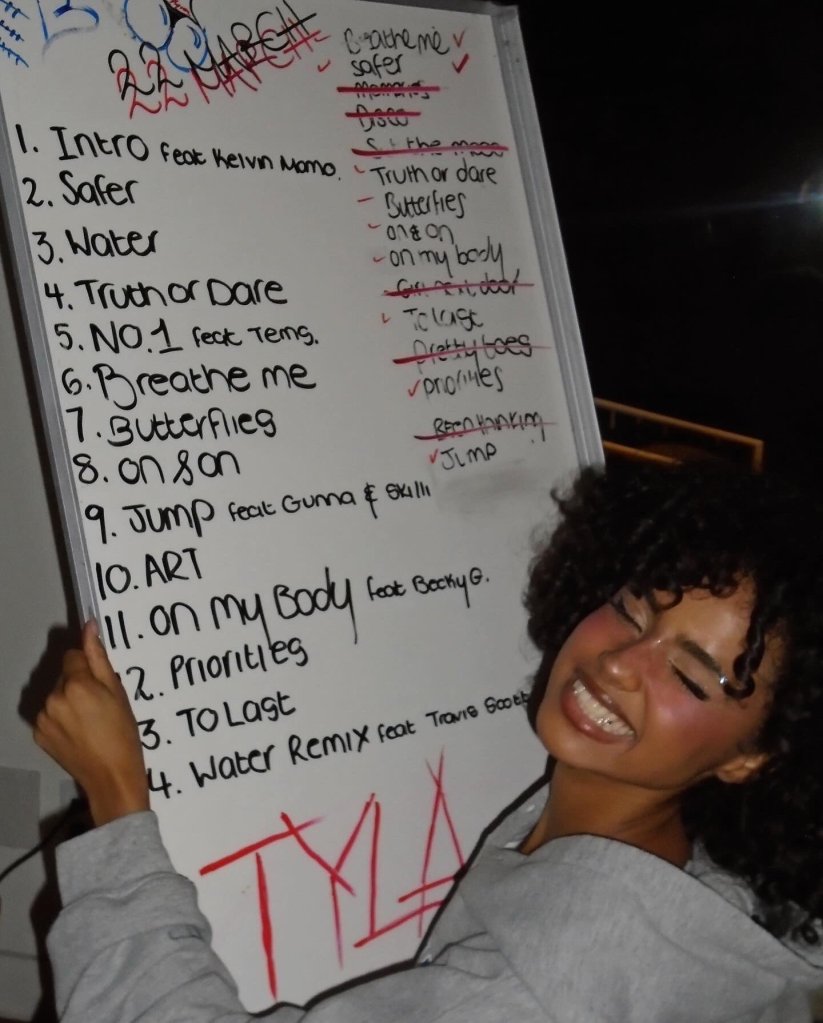 22 MARCH
1. Intro feat Kelvin Momo.
2. Safer
3. Water
4. Truth or Dare
5. NO.1 feat Tems.
6. Breathe me
7. Butterflies
8. on & on
9. Jump feat Gunna & Skilli
10. ART
11. on my Body feat Becky G.
2. Priorities
3. TO Last
4. Water Remix feat Travis Scott
TYLA
Breathe me
safer
Memories
Disco
the moon
Truth or dare
Butterflies
on & on
on my body
Girl next door
To last
Pretty toes
priorities
Been thinking
Jump